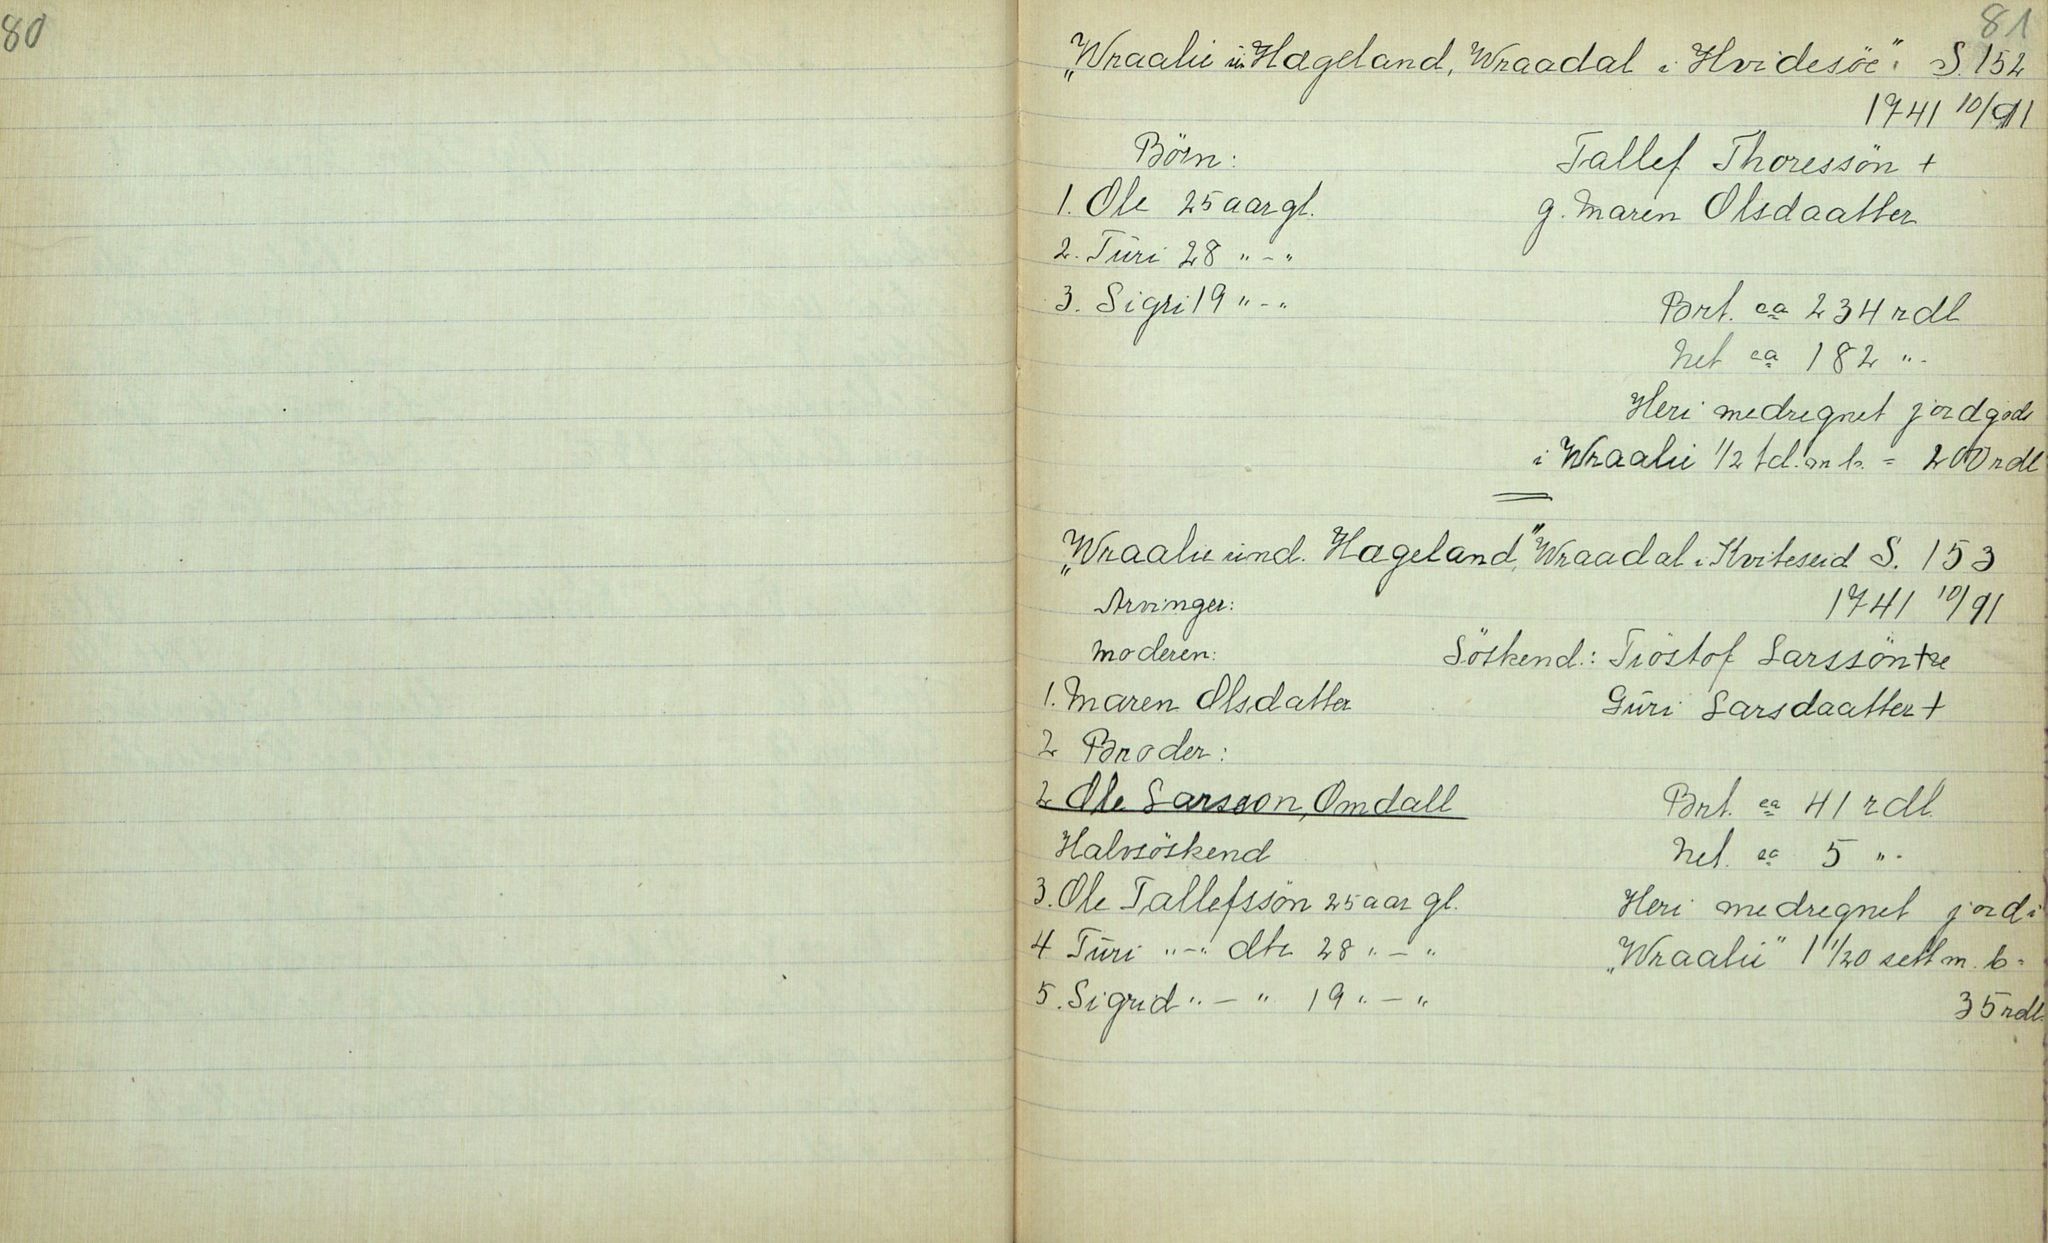 80
81
„Wraalie ü Hægeland, Wraadal i Hvidesöe". S. 152
1741 10/91
Börn: Tallef Thoressön +
1. Ole 25 aar gl. g. Maren Olsdaatter
2. Tūri 28 „ - „
3. Sigri 19 „ - „ Brt. ca 234 rdl
Net ca 182 „ -
Heri medregnet jordgods
i Wraalii 1/2 td. m b. = 200 rdl
„Wraalie ünd. Hægeland", Wraadal i Kviteseid S. 153
Arvinger: 1741 10/91
Moderen: Söskend.: Tiöstof Larssön +re
1. Maren Olsdatter Gūri Larsdaatter +
2 Broder:
2 Ole Larsson, Omdall Brt. ca 41 rdl
Halvsöskend Net. ca 5 „ -
3. Ole Tallefssön 25 aar gl. Heri medregnet jord i
4 Tūri „ - „ dtr 28 „ - „ „Wraalii" 1 1/20 sett m. b =
5. Sigrid „ - „ 19 „ - „ 35 rdl.